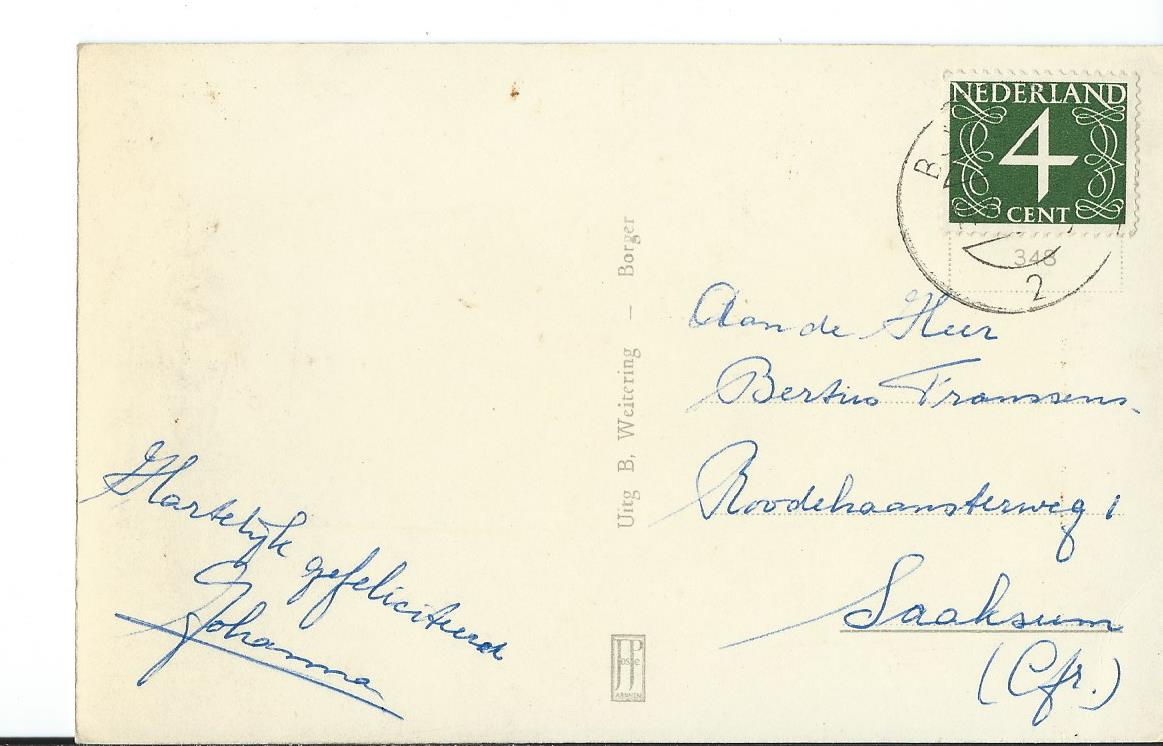 NEDERLAND
4
CENT
348
2
Aan de Heer
Bertus Franssens.
Roodehaansterweg 1
Saaksum
(Gr.)
Uitg B. Weitering – Borger
Hartelijk gefeliciteerd
Johanna
JP
ARNHEM